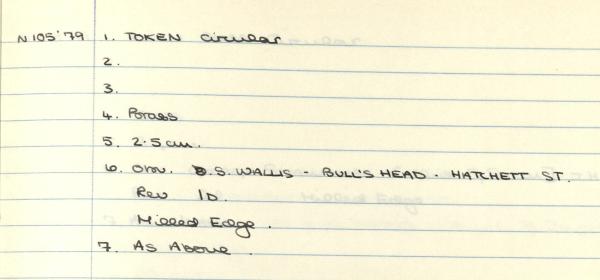 N105'79 1. TOKEN circular
2.
3.
4. Brass
5. 2.5cm.
6. Obv. S. WALLIS - BULL'S HEAD. HATCHETT ST.
Rev 1D.
Milled Edge.
7. As Above.